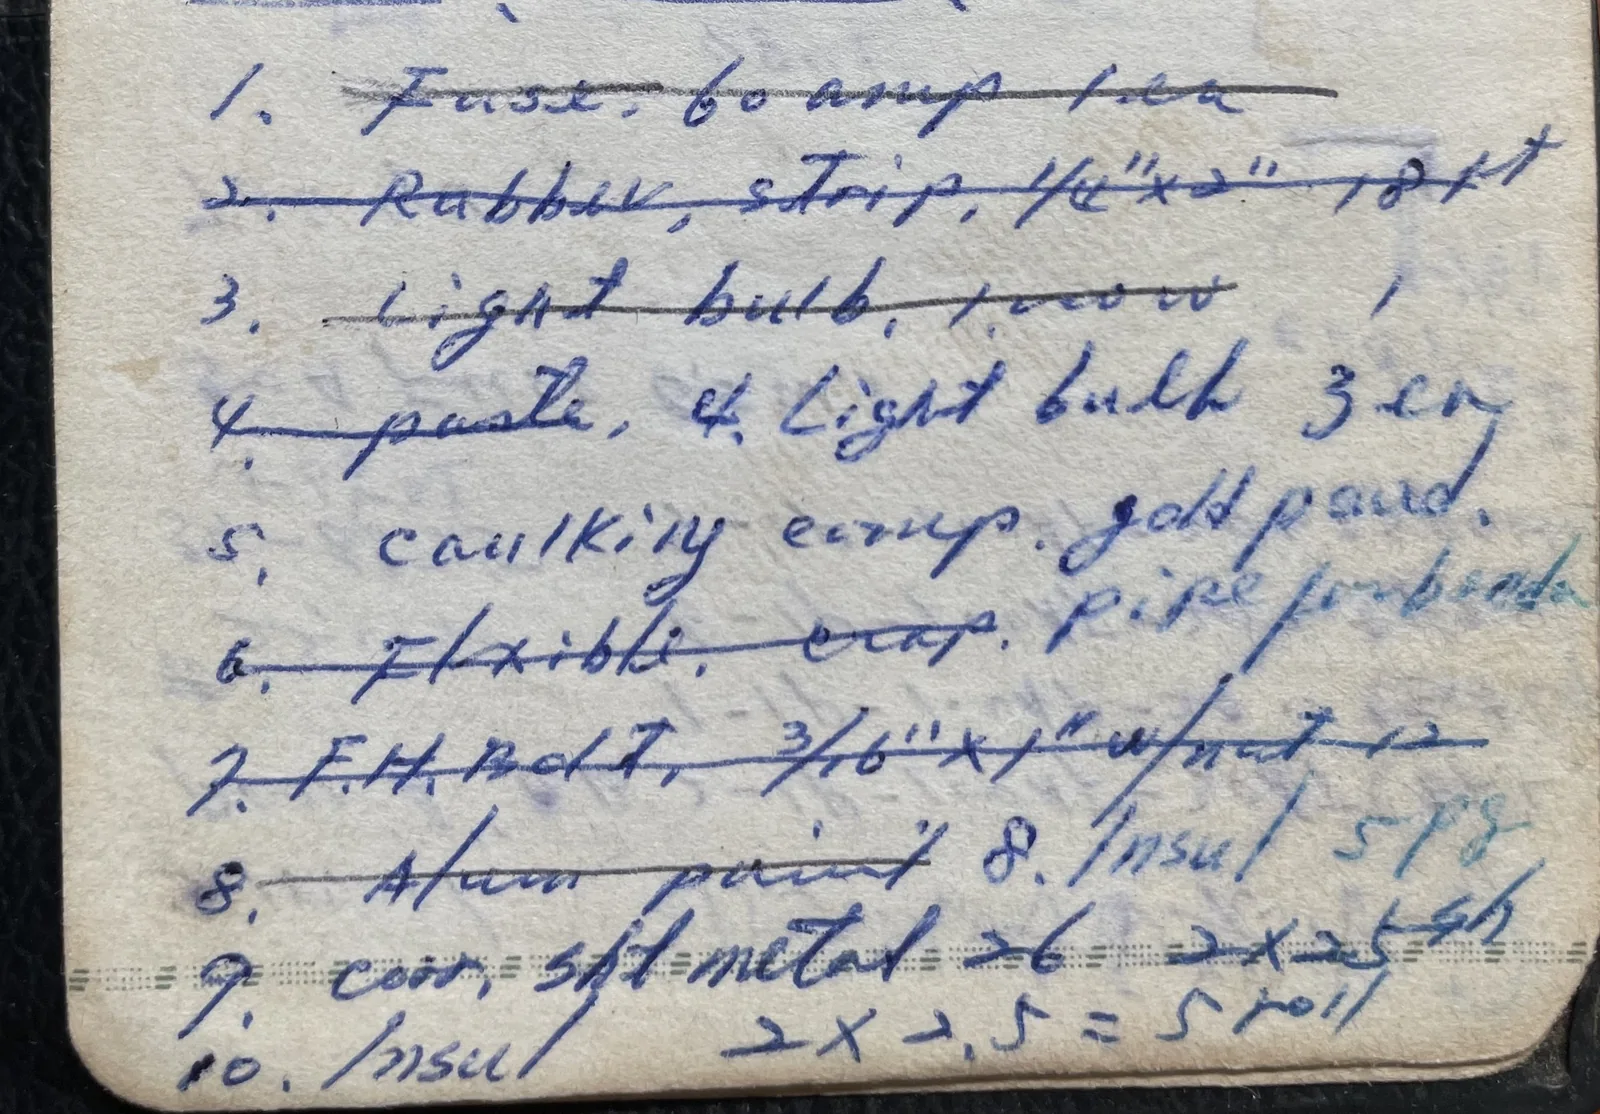 1. Fuse. 60 amp 1.ea
2. Rubber, strip, 1/4"x2" 18 ft
3. Light bulb, 1. 1
4. paste, 4. Light bulb 3 ea
5. caulking comp. gold pound.
6. Flxible. pipe for
7. F.H. Bolt, 3/16"x1" w/nut 12
8. Alum paint 8. Insul 5 pg
9. corr, sht metal 26 2x2.5 sh
10. Insul 2x2.5 = 5 roll